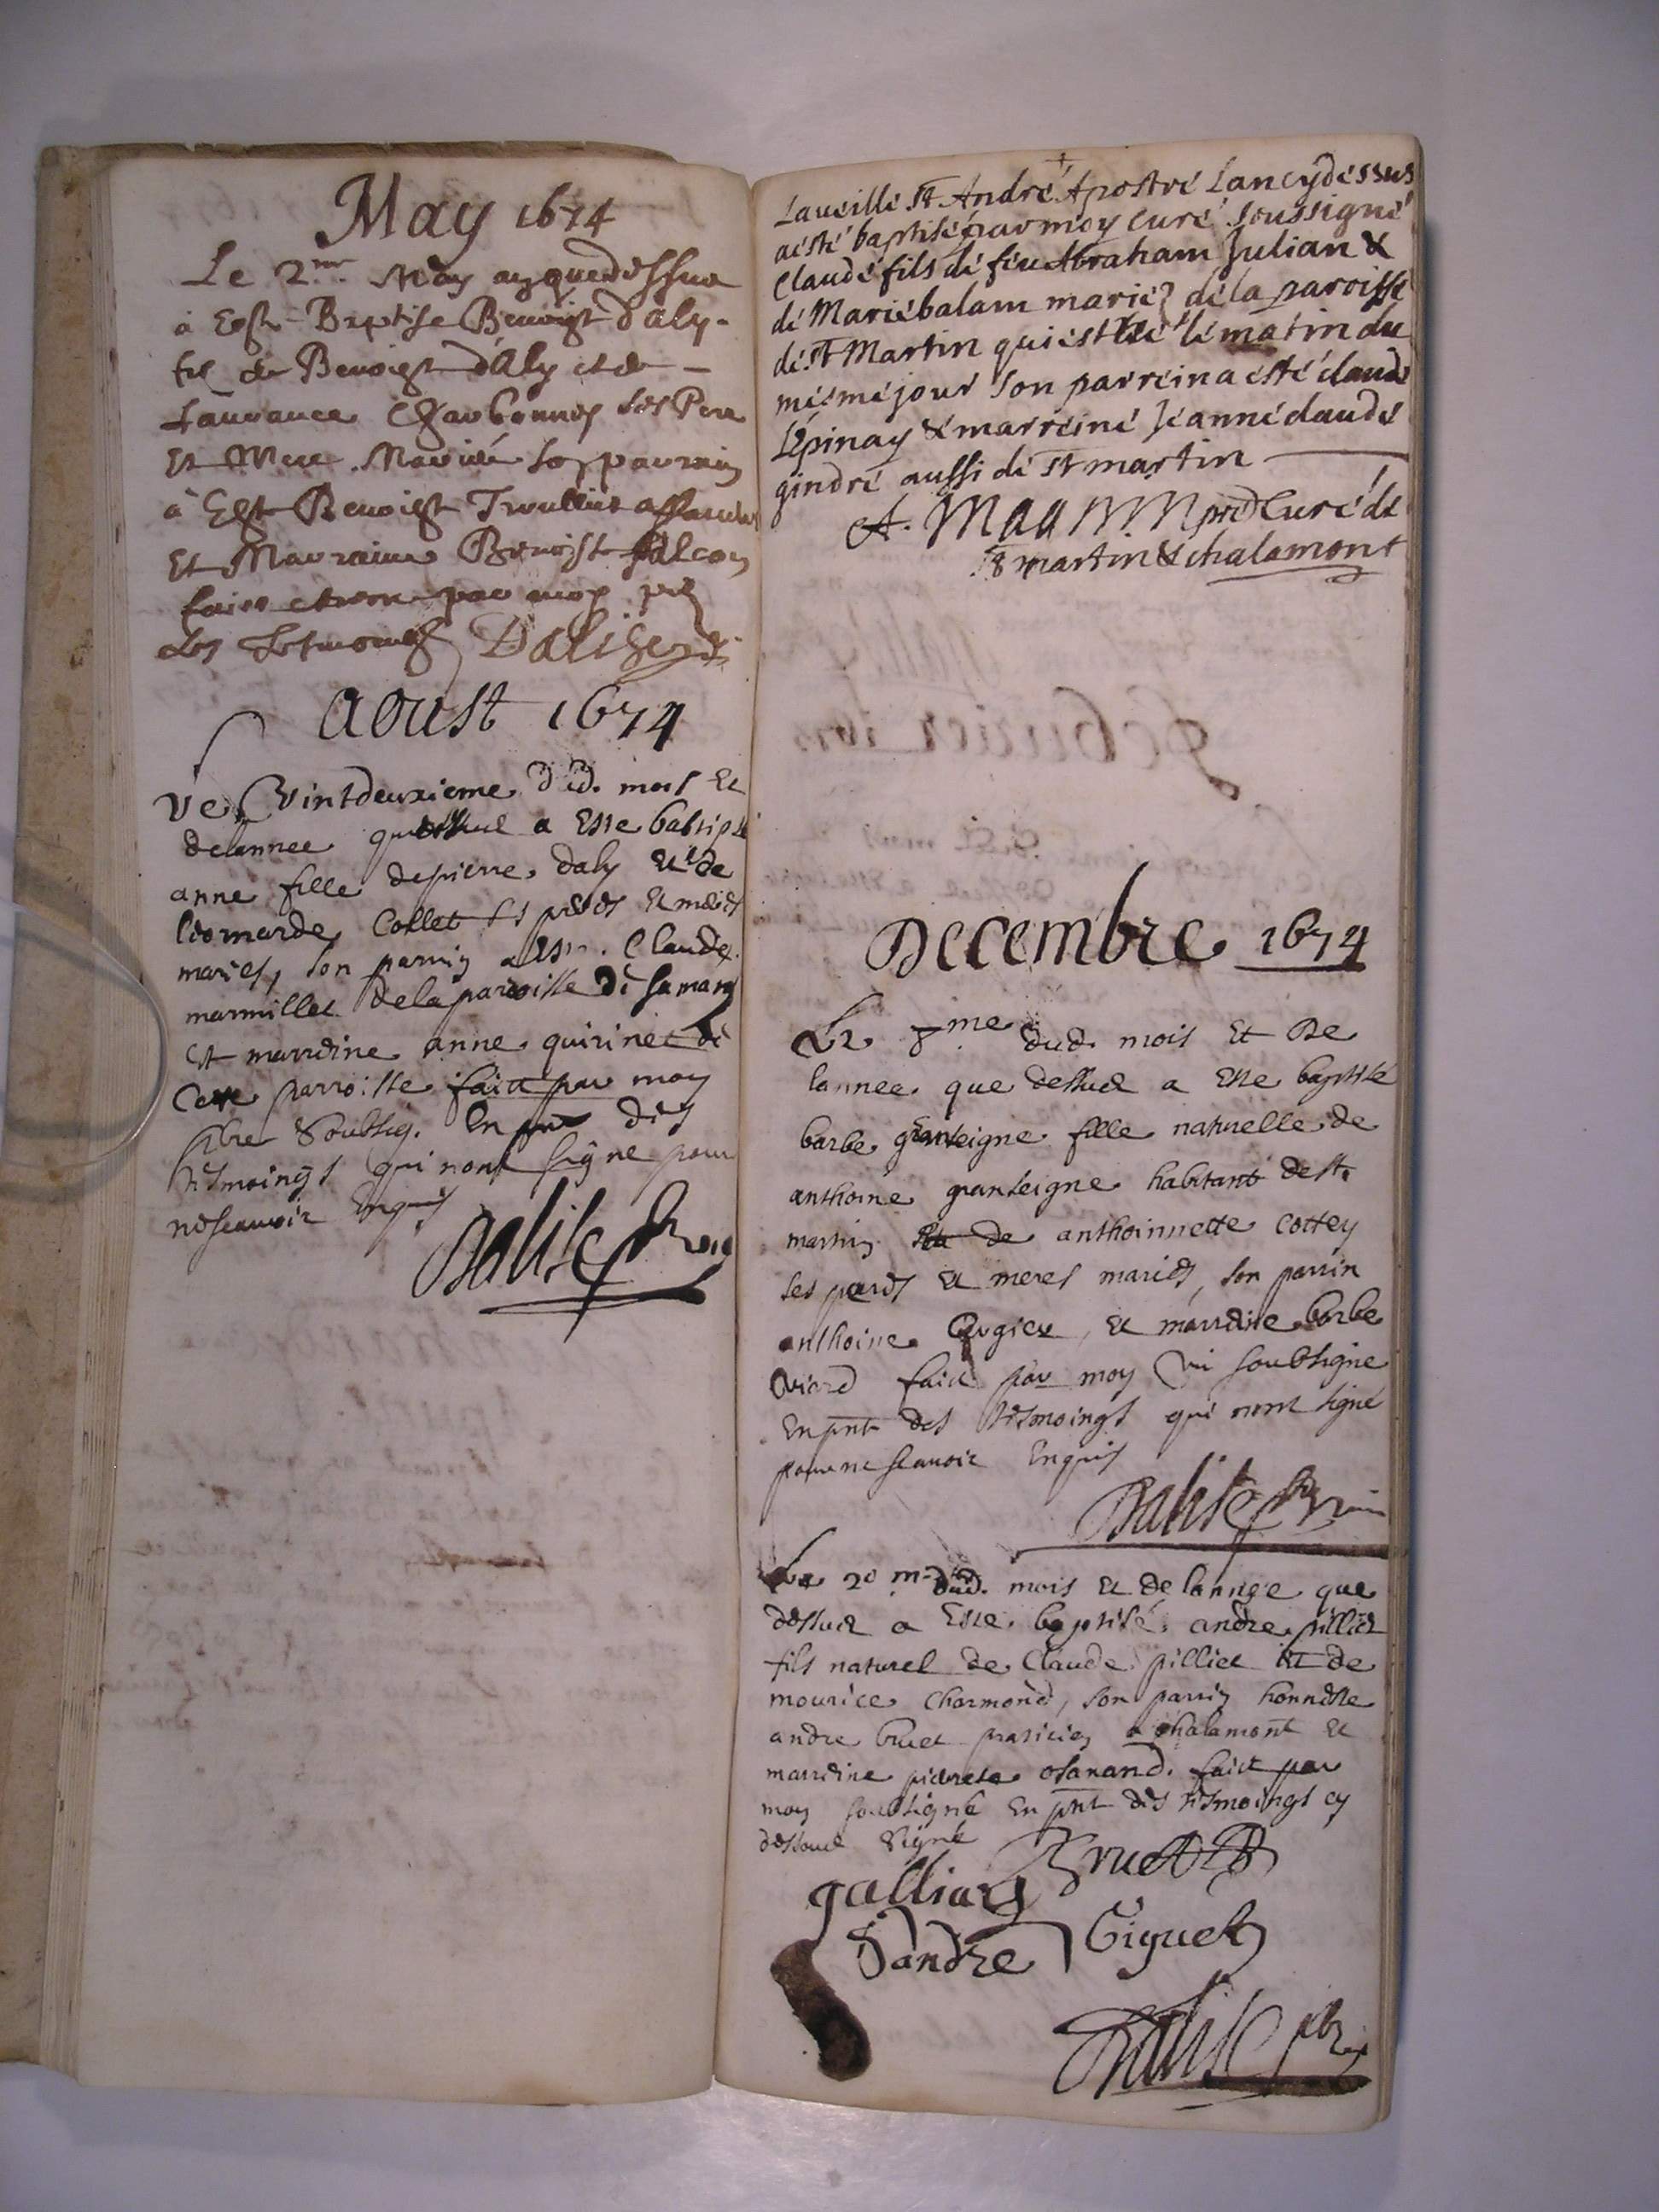 May 1674
Le 2me May an que dessus
a Este Baptise Benoist daly
fil de Benoist d'Aly et de
Laurance Charbonnes ses Pere
Et Mere Mariés son parrain
à Este Benoist
Et Marraine Benoiste falcon
faict par moy
Les tesmoings
aoust 1674
Le Vintdeuxieme dud. mois Et
delannee que dessus a Este babtipsé
anne fille de pierre daly Et de
leonarde Collet ses peres Et meres
maries, son parrin a este Claude
marmillet de la paroisse de Samans
Et marreine anne quirinet de
Cette parroisse faict par moy
pbre Soubsig. En pnt des
tesmoings qui nont signe pour
ne scauoir Enquis
Dalise
La ueille St André Apostre Lancydessus
aesté baptisé par moy Curé Soussigné
Claude fils de feu Abraham Julian &
de Marie balam mariez de la paroisse
de St Martin qui est né le matin du
mesme jour son parrein a esté claude
Lépinay & marreine Jeanne claude
gindre aussi de st martin
A. Curé de
St martin & chalamont
Decembre 1674
Le 8me dud. mois Et De
lannee que dessus a Este baptisé
barbe granseigne fille naturelle de
anthoine granseigne habitant de st.
martin Et de anthoinnette Cottey
ses peres Et meres mariés, son parrin
anthoine Et marreine barbe
Viard faict par moy soubsigne
En pnt des tesmoings qui nont signé
pour ne scauoir Enquis
Dalise
Le 20me dud. mois Et de lannee que
dessus a Este baptisé andre pilliet
fils naturel de Claude pilliet Et de
mourice Charmond, son parrin honneste
andre bruet praticien a chalamont Et
marreine pierrete osanand. faict par
moy soubsigné En pnt des tesmoings cy
dessoub signé
Bruet
galliard
Sandre Giguet
Dalise pbre